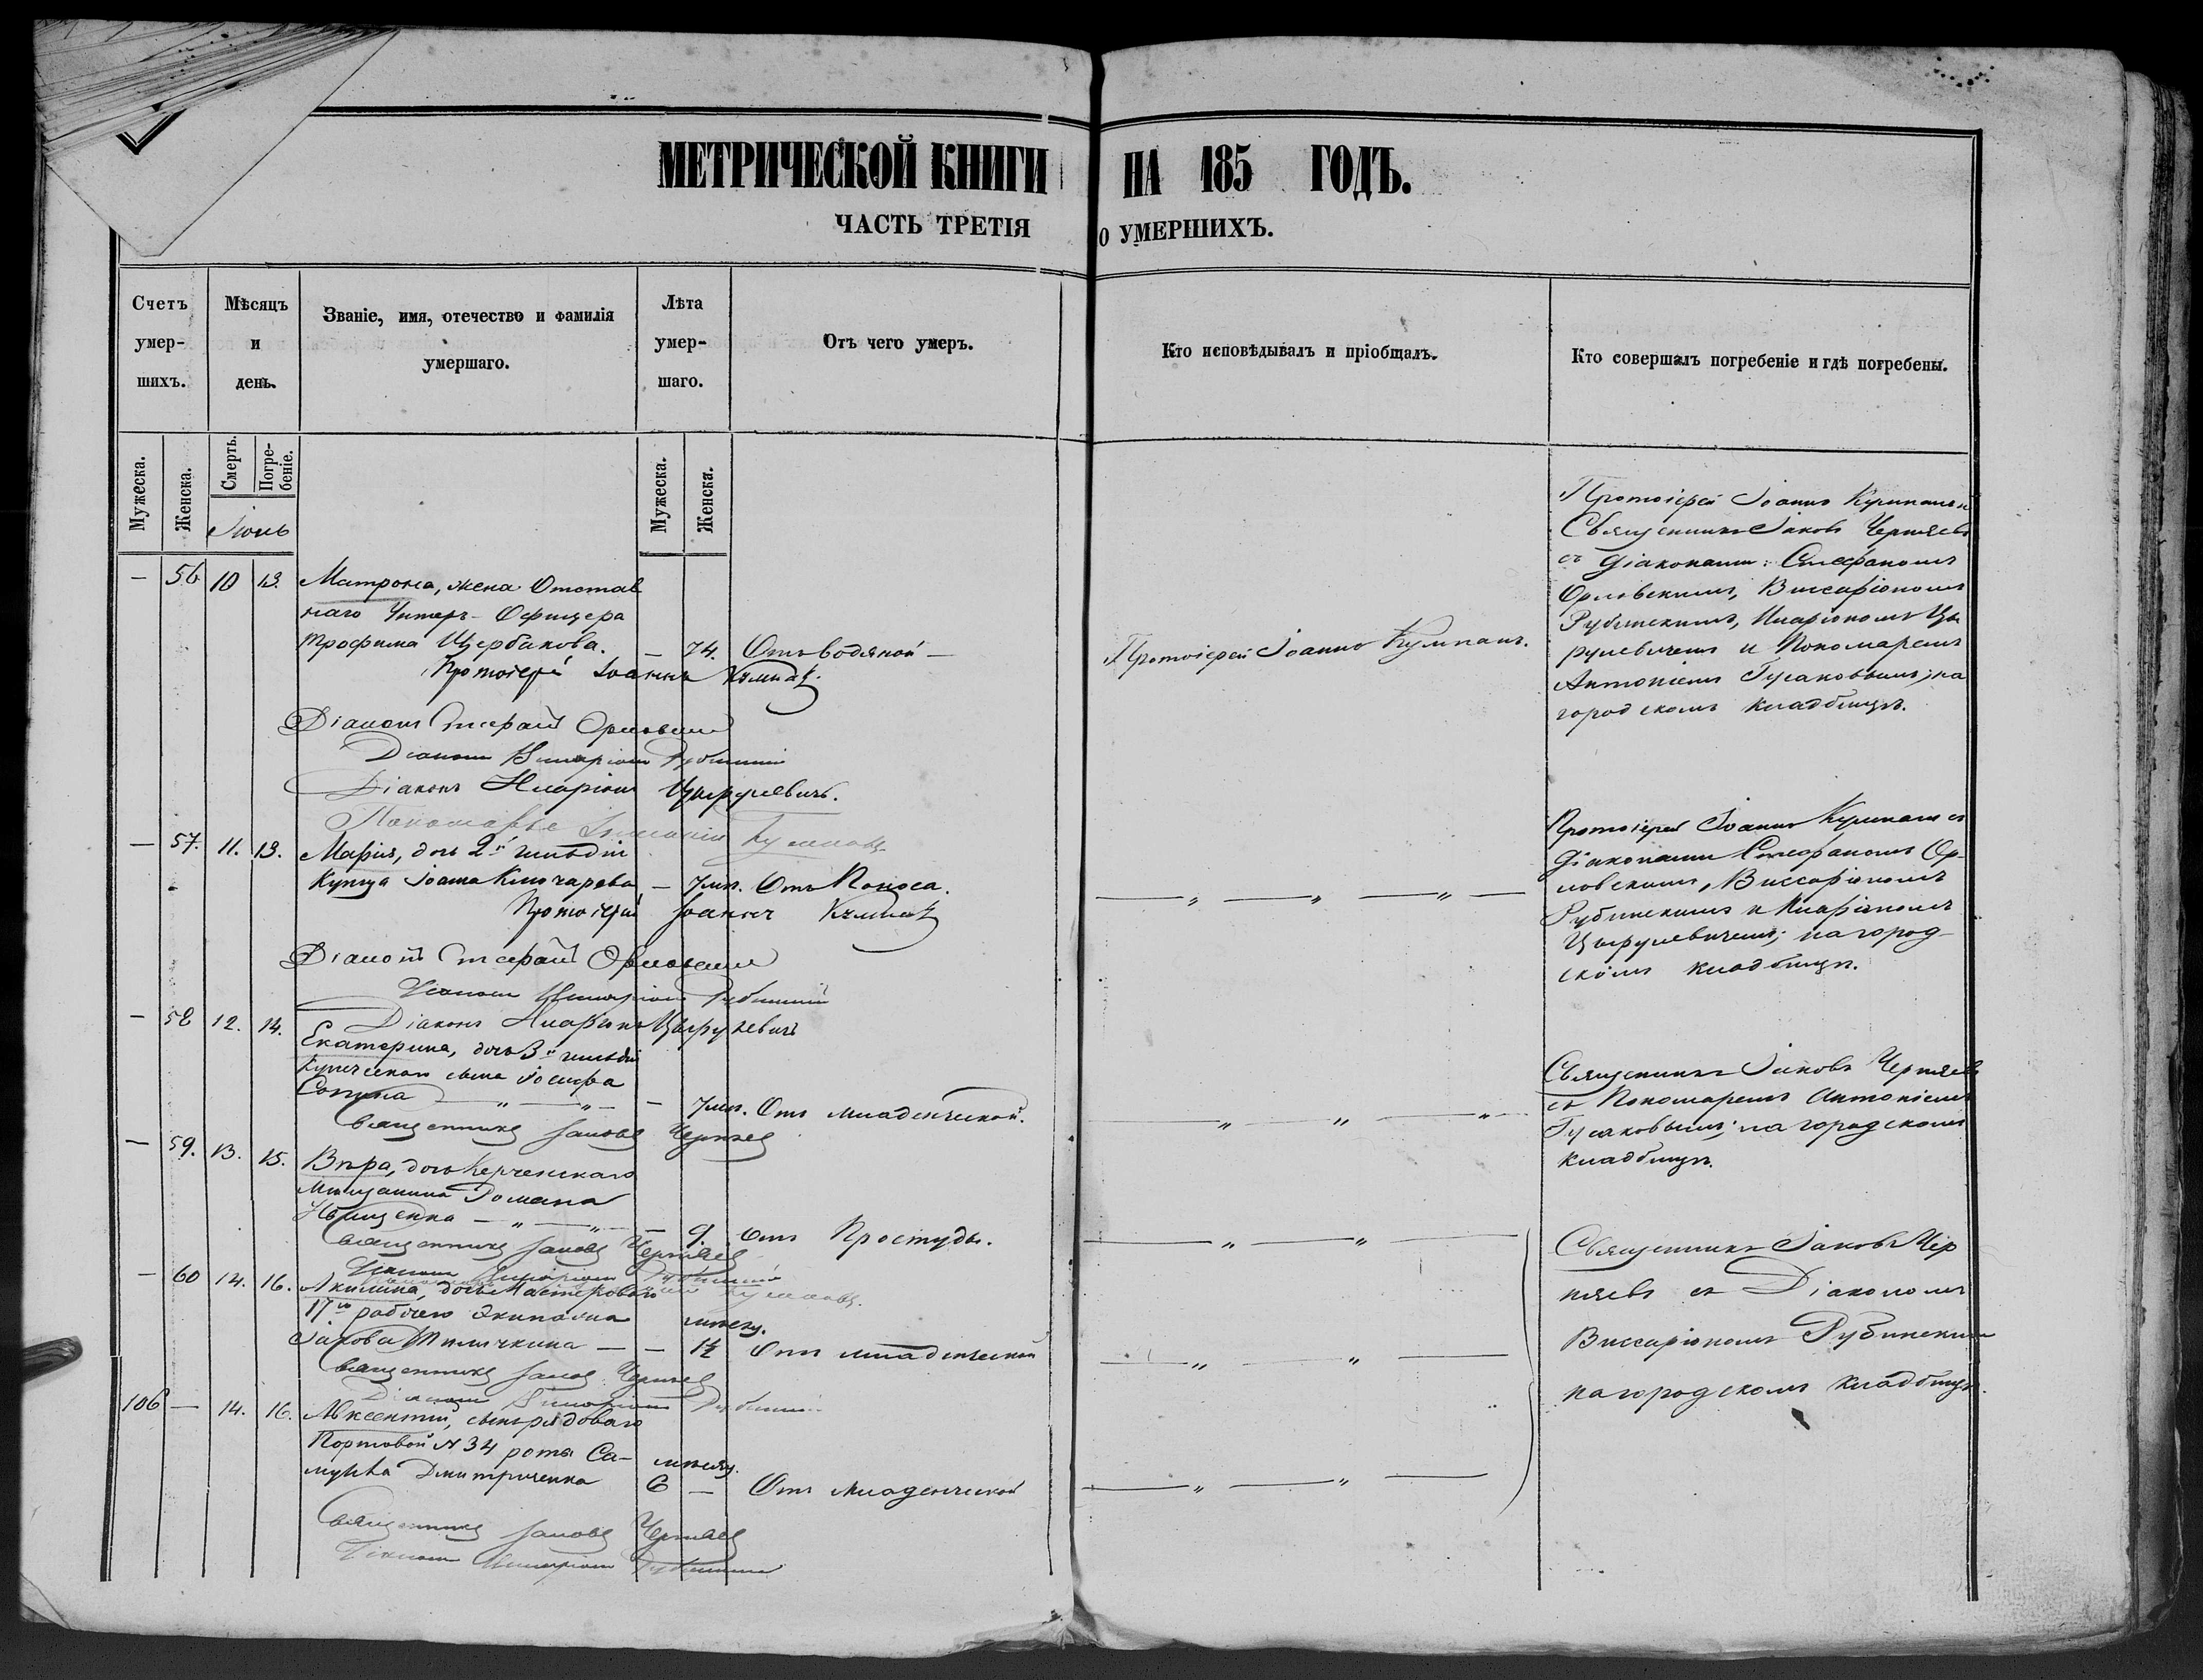 МЕТРИЧЕСКОЙ КНИГИ НА 185 ГОДЪ.
ЧАСТЬ ТРЕТІЯ О УМЕРШИХЪ.
Счетъ умер-шихъ.
Мѣсяцъ и день.
Званіе, имя, отечество и фамилія умершаго.
Лѣта умер-шаго.
Отъ чего умеръ.
Кто исповѣдывалъ и пріобщалъ.
Кто совершалъ погребеніе и гдѣ погребены.
Мужеска.
Женска.
Смерть.
Погре-беніе.
Мужеска.
Женска.
Іюнь
— 56 10 13. Матрона, жена Отстав
наго Унтеръ-Офицера
Трофима Щербакова. — 74. Отъ водяной —
Протоіерей Іоаннъ Кумпанъ.
Протоіерей Іоаннъ Кумпанъ и
Священникъ Іаковъ Черняевъ
съ Діаконами: Стефаномъ
Орловскимъ, Виссаріономъ
Рубинскимъ, Иларіономъ Цы
рулевичемъ и Пономаремъ
Антоніемъ Гусаковымъ; на
городскомъ кладбищѣ.
Протоіерей Іоаннъ Кумпанъ
Діаконъ Стефанъ Орловскій
Діаконъ Виссаріонъ Рубинскій
Діаконъ Иларіонъ Цырулевичъ.
Пономарь Антоній Гусаковъ
— 57. 11. 13. Марія, дочь 2й гильдіи
Купца Іоана Ключарева — 7 мѣс. Отъ Поноса.
— „ — „ — „ —
Протоіерей Іоаннъ Кумпанъ съ
Діаконами Стефаномъ Ор-
ловскимъ, Виссаріономъ
Рубинскимъ и Иларіономъ
Цырулевичемъ; на город-
скомъ кладбищѣ.
Протоіерей Іоаннъ Кумпанъ
Діаконъ Стефанъ Орловскій
Діаконъ Виссаріонъ Рубинскій
Діаконъ Иларіонъ Цырулевичъ
— 58 12. 14. Екатерина, дочь 3й гильдіи
купеческаго сына Іосифа
— „ — „ — — 7 мѣс. Отъ младенческой.
— „ — „ — „
Священникъ Іаковъ Черняевъ
съ Пономаремъ Антоніемъ
Гусаковымъ; на городскомъ
кладбищѣ.
Священникъ Іаковъ Черняевъ
— 59. 13. 15. Вѣра, дочь Керченскаго
Мѣщанина Романа
Иващенка — „ — „ — — 9. Отъ Простуды.
— „ — „ —
Священникъ Іаковъ Чер
няевъ съ Діакономъ
Виссаріономъ Рубинскимъ
на городскомъ кладбищѣ.
Священникъ Іаковъ Черняевъ
Діаконъ Виссаріонъ Рубинскій
— 60 14. 16. Акилина, дочь Мастероваго
17го рабочаго Экипажа мѣсяц.
Іакова — — 1½ Отъ младенческой
— „ — „ —
Священникъ Іаковъ Черняевъ
Діаконъ Виссаріонъ Рубинскій
106 — 14. 16. Авксентій, сынъ рядоваго
Портовой №34 роты Са- мѣсяц.
муила Дмитриченка 6 — Отъ Младенческой
— „ — „ —
Священникъ Іаковъ Черняевъ
Діаконъ Виссаріонъ Рубинскій